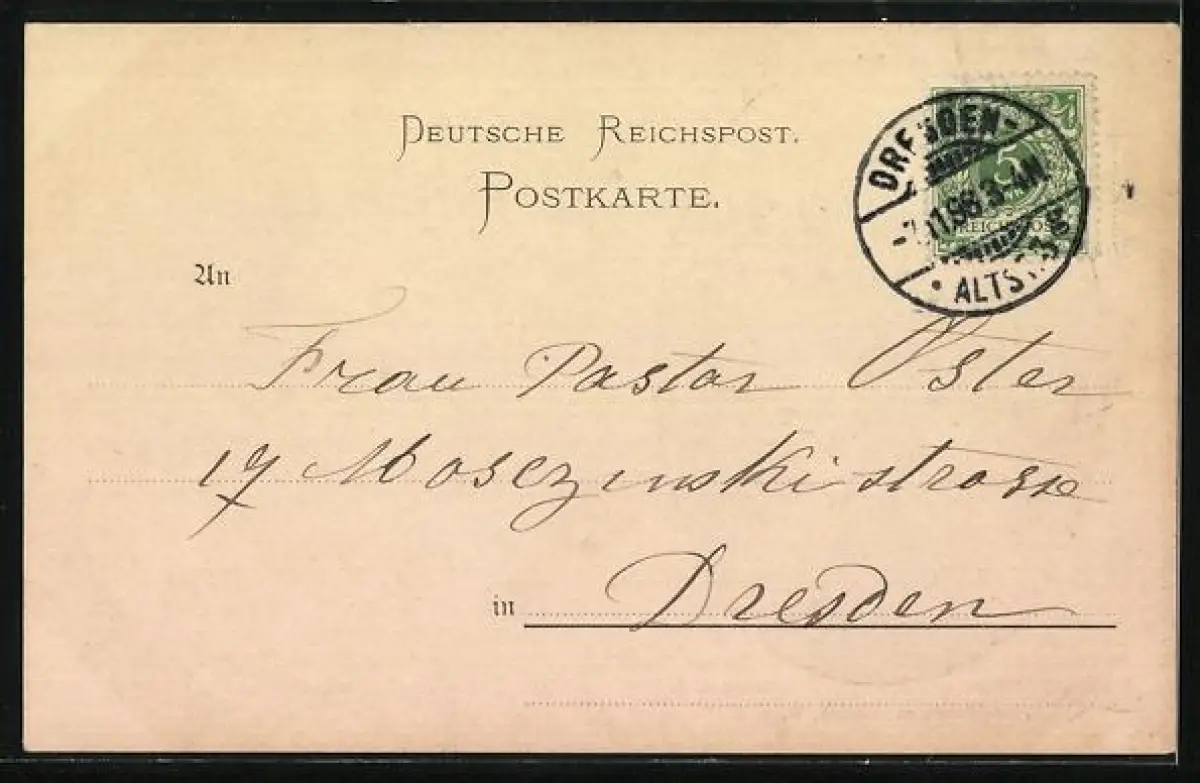 DEUTSCHE REICHSPOST.
POSTKARTE.
5
REICHSPOST
DRESDEN-
3-4N.
ALTST. 3
An
Frau Pastor Oster
17 Mosczinskistrasse
in Dresden